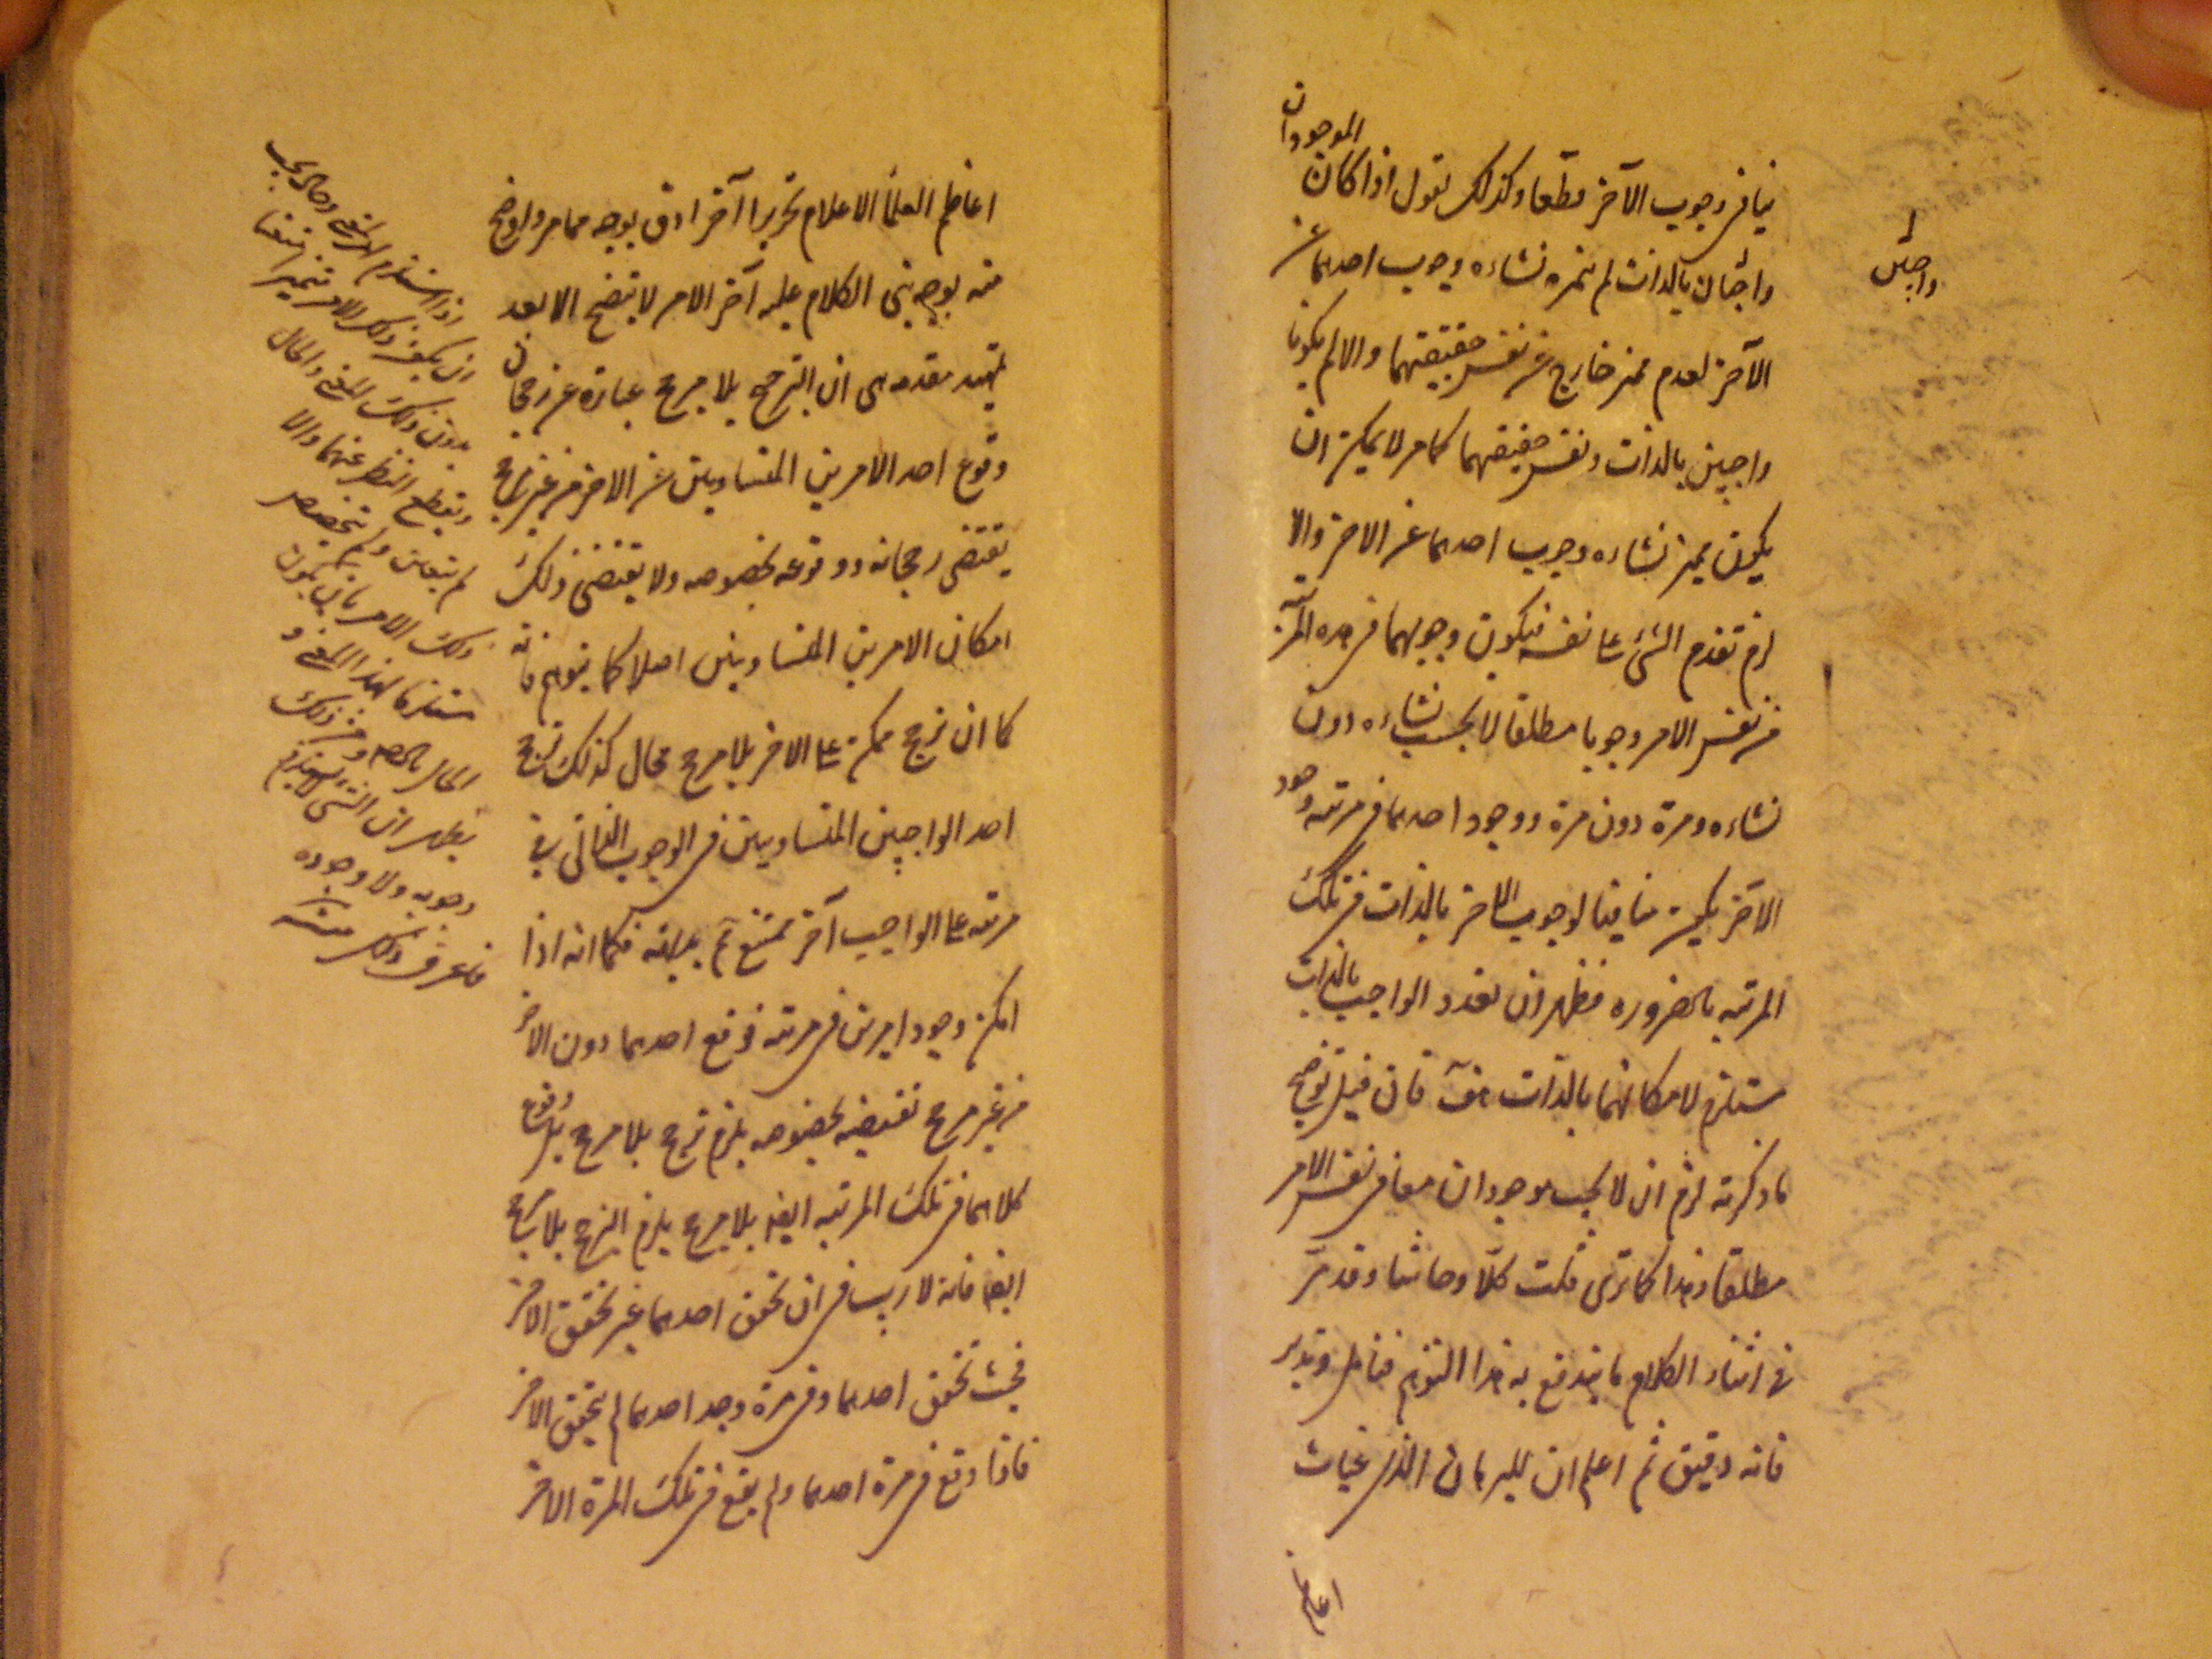 الموجودان
ينافى وجوب الآخر قطعا وكذلك نقول اذا كان
واجبان بالذات لم يتميز نشاءه وجوب احدهما عن
الآخر لعدم مميز خارج عن نفس حقيقتهما والا لم يكونا
واجبين بالذات ونفس حقيقتهما كما مر لا يمكن ان
يكون مميز نشاءه وجوب احدهما عن الاخر والا
لزم تقدم الشئ على نفسه فيكون وجوبهما فى هذه المرتبة
فى نفس الامر وجوبا مطلقا لا بحسب نشاءه دون
نشاءه ومرة دون مرة ووجود احدهما فى مرتبة وجود
الآخر يكون منافيا لوجوب الاخر بالذات فى تلك
المرتبه بالضروره فظهر ان تعدد الواجب بالذات
مستلزم لامكانهما بالذات هف فان قيل توضيح
ما ذكرته لزم ان لا يجب موجودان معا فى نفس الامر
مطلقا وهذا كما ترى قلت كلا وحاشا وقد مر
فى اثناء الكلام ما يندفع به هذا التوهم فتامل وتدبر
فانه دقيق ثم اعلم ان للبرهان الذى غياث
اعاظم
واجبين
اعاظم العلماء الاعلام تحريرا آخر ادق بوجه مما مر واوضح
منه بوجه يبنى الكلام عليه آخر الامر لا يتضح الا بعد
تمهيد مقدمه هى ان الترجح بلا مرجح عبارة عن رجحان
وقوع احد الامرين المتساويين عن الاخر من غير مرجح
يقتضى رجحانه ووقوعه بخصوصه ولا يقتضى ذلك
امكان الامرين المتساويين اصلا كما يتوهم فانه
كما ان ترجح ممكن على الاخر بلا مرجح محال كذلك ترجح
احد الواجبين المتساويين فى الوجوب الذاتى فى
مرتبه على الواجب آخر ممتنع بديهة فكما انه اذا
امكن وجود امرين فى مرتبه فوقع احدهما دون الاخر
من غير مرجح تقتضيه بخصوصه يلزم ترجح بلا مرجح بل وقوع
كلاهما فى تلك المرتبه ايضا بلا مرجح يلزم الترجح بلا مرجح
ايضا فانه لا ريب فى ان تحقق احدهما غير تحقق الاخر
فحيث تحقق احدهما وفى مرة وجد احدهما لم يتحقق الاخر
فاذا وقع فى مرة احدهما ولم يقع فى تلك المرة الاخر
ان يكون ذلك الامر
بدون ذلك المعنى والحال
ويقطع النظر عنهما والا
لم يتعين ولم يتخصص
ذلك الامر بان يكون
مستلزما لهذا المعنى و
الحال بالضم ومن ذلك
يظهر ان الشئ لا يستلزم
وجوبه ولا وجوده
فاعرف ذلك منه